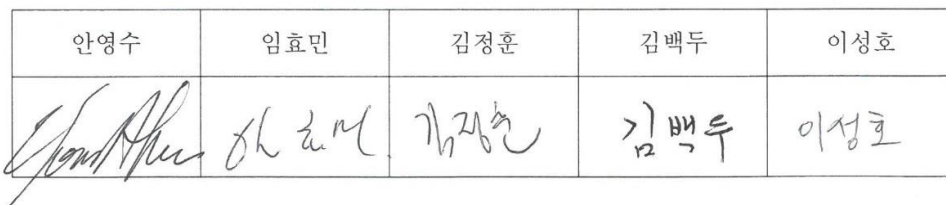 안영수 임효민 김정훈 김백두 이성호
임효민 김정훈 김백두 이성호